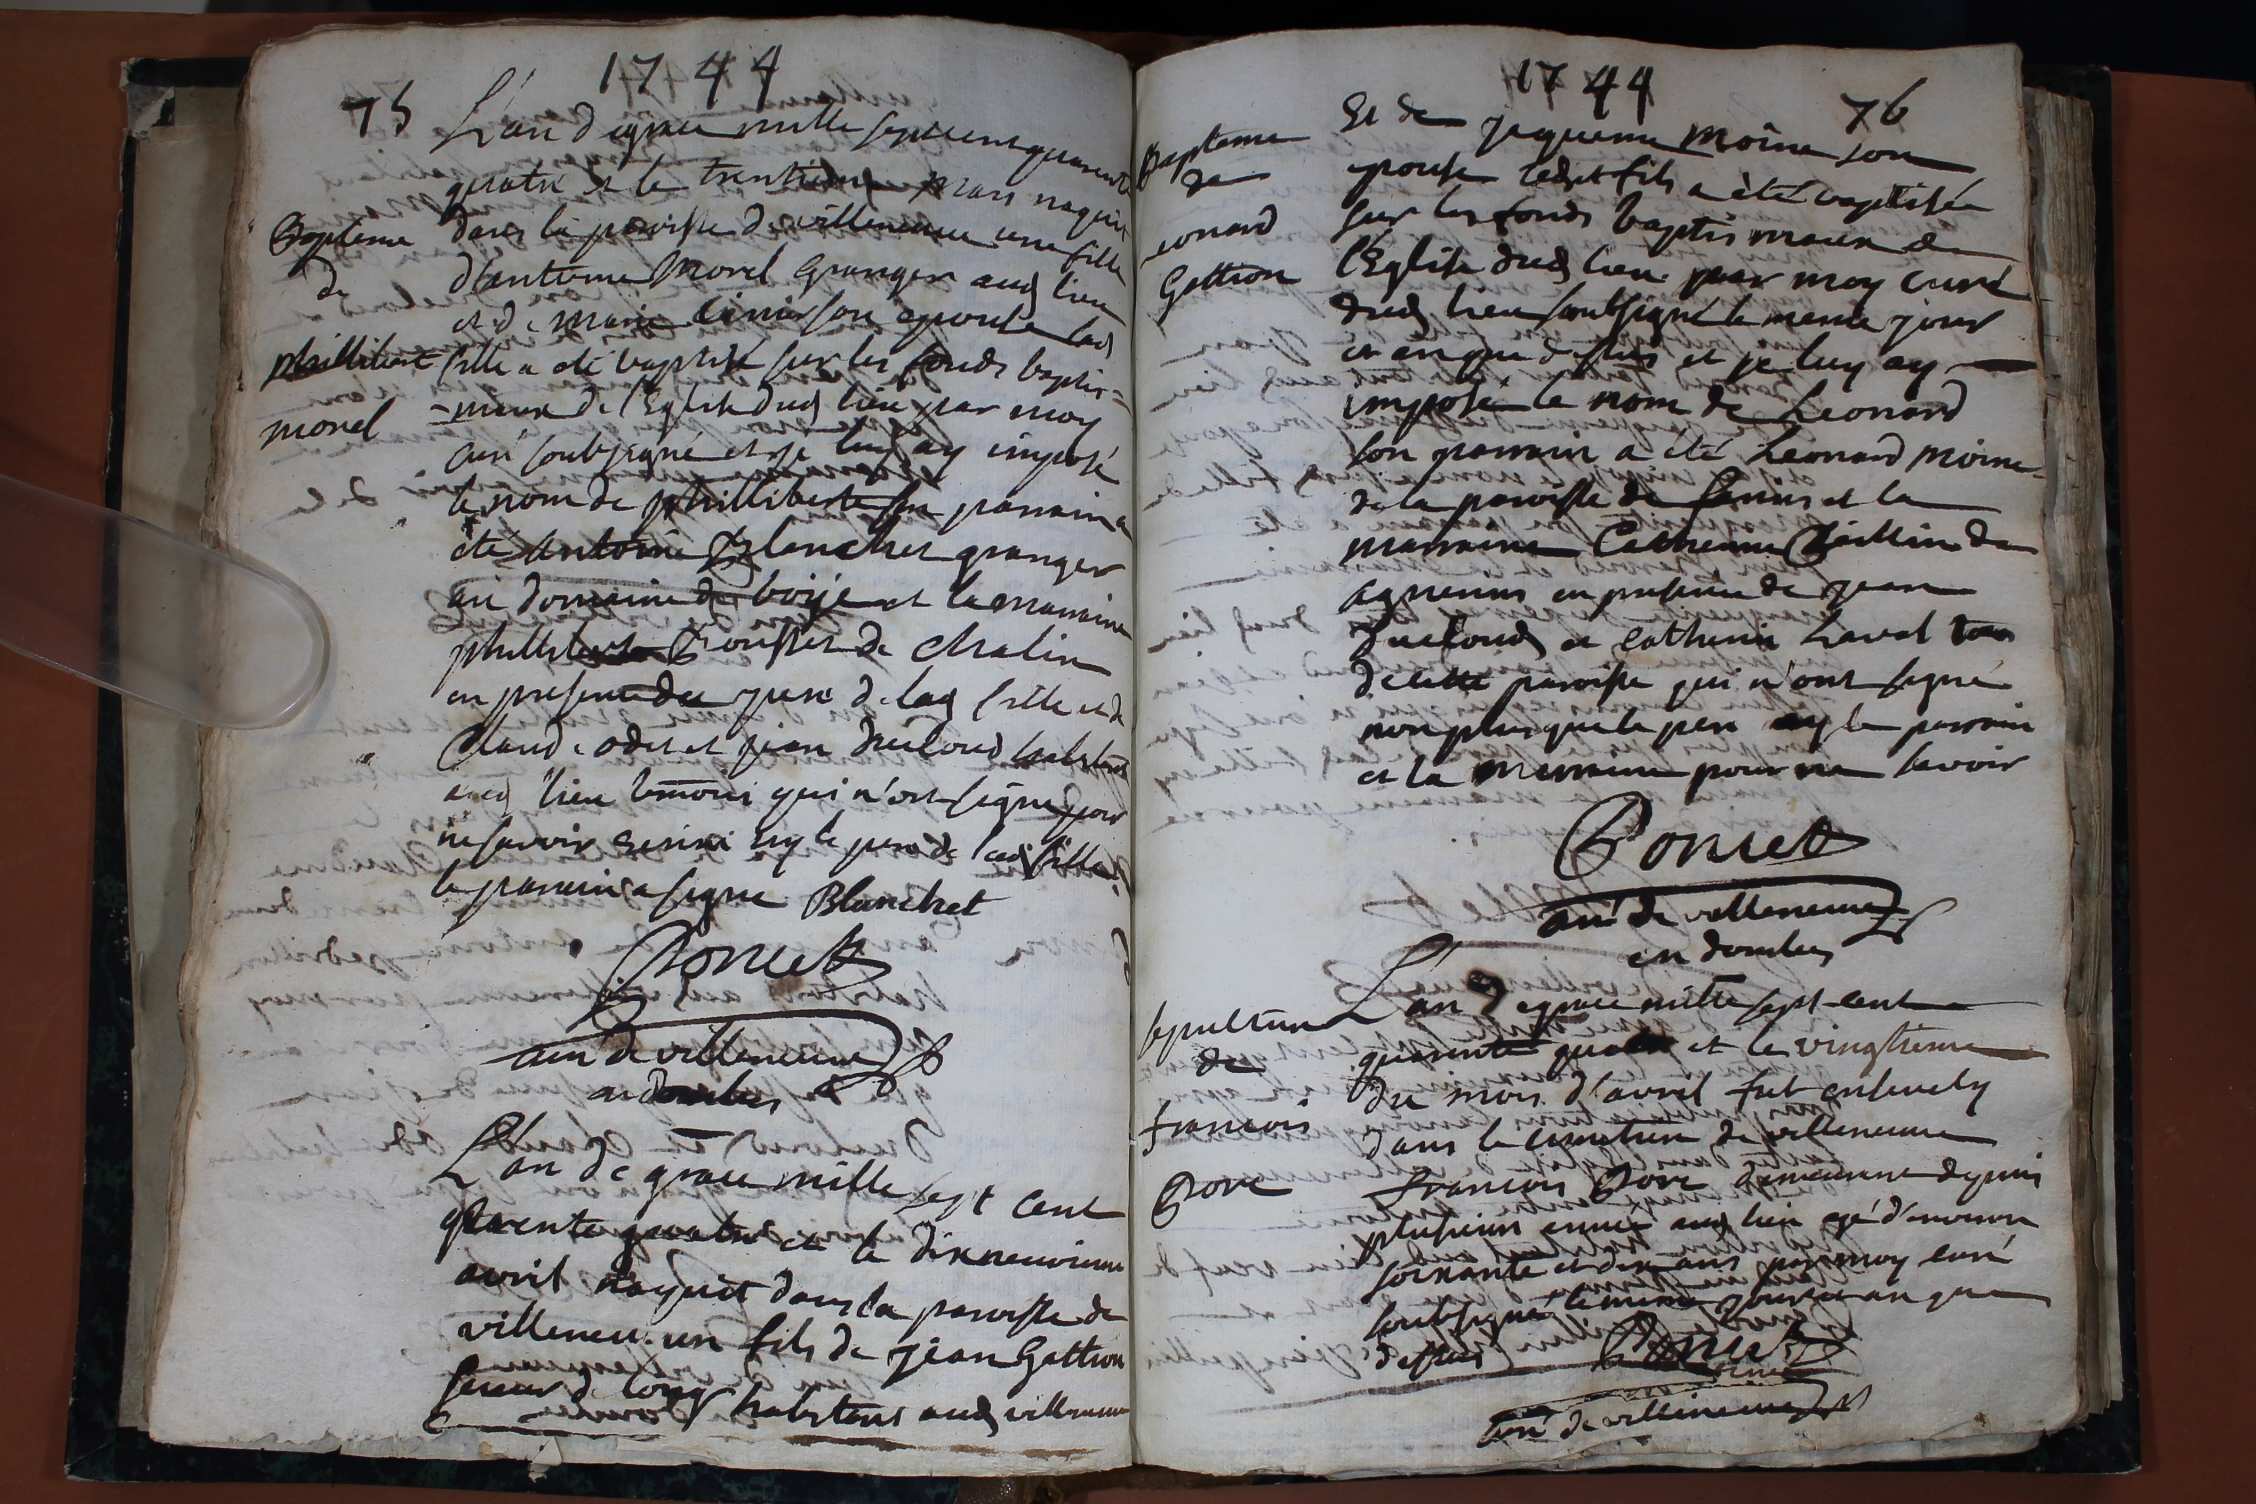 1744
75
L'an de grace mille sept cent quarente
quatre et le trentieme Mars naquit
dans la paroisse de villeneuve une fille
Bapteme
de
phillibert
morel
d'antoine Morel Granger aud lieu
et de Marie son epouse lad
fille a été baptisé sur les fonds baptis=
=maux de l'Eglise dud lieu par moy
curé soubsigné et je luy ay imposé
le nom de phillberte son parrain a
été antoine Blanchet granger
au domaine de boye et la marraine
philliberte Brousset de Chalin
en presence du pere de lad fille et de
Claude odet et jean Ducloud habitans
aud lieu temoins qui n'ont signé pour
ne savoir ecrire ny le pere de lad fille
le parrain a signe Blanchet
Poncet
curé de villeneuve
en dombes
L'an de grace mille sept cent
quarente quatre et le dixneuvieme
avril naquit dans la paroisse de
villeneu. un fils de jean Gattion
scieur de long habitans aud villeneuve
1744
76
Bapteme
de
Leonard
Gattion
Et de jaqueme Moine son
epouse ledit fils a été baptisée
sur les fonds baptismaux de
l'Eglise dud lieu par moy curé
dud lieu soubsigné le meme jour
et an que dessus et je luy ay
imposé le nom de Leonard
son parrain a été Leonard Moine
de la paroisse de et la
marraine Catherine de
agnereins en presence de jean
Ducloud et Catherin Laval tous
de cette paroisse qui n'ont signé
non plus que le pere ny le parrain
et la marraine pour ne savoir
Poncet
curé de villeneuve
en dombes
sepulture
de
francois
Dore
L'an de grace mille sept cent
quarente quatre et le vingtieme
du mois d'avril fut ensevely
dans le cimetiere de villeneuve
francois Dore demeurant depuis
plusieurs année aud lieu agé d'environ
soixante et dix ans par moy curé
soubsigné le meme jour et an que
dessus Poncet
curé de villeneuve